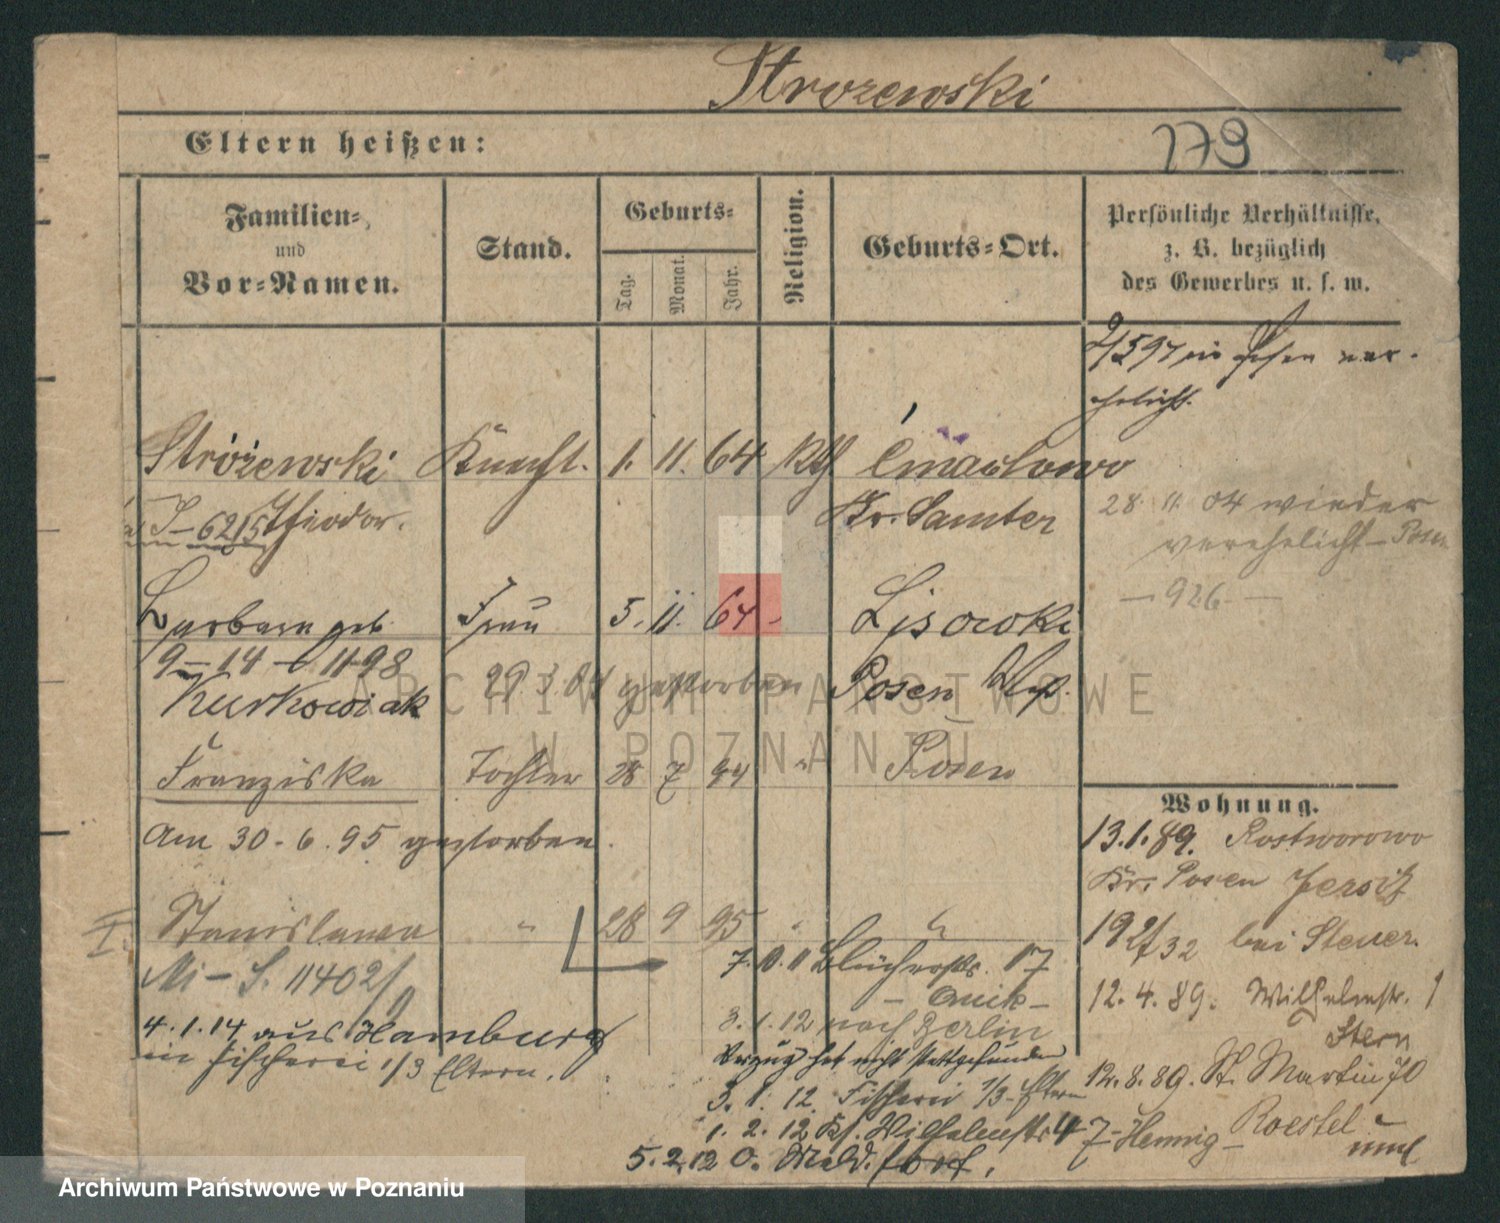 Strozewski
Eltern heißen:
179
Familien-
und
Vor-Namen.
Stand.
Geburts-
Tag.
Monat.
Jahr.
Religion.
Geburts-Ort.
Persönliche Verhältnisse,
z. B. bezüglich
des Gewerbes u. s. w.
in Posen ver-
ehelicht.
Stróżewski Knecht. 1. 11. 64 Kth Ćmachowo
Theodor. Kr. Samter
28 11 04 wieder
verehelicht - Posen
— 926 —
Barbara geb. Frau 5. 11. 64 Lisowki
9 — 14 — 11 98
Kurkowiak 29 3 04 gestorben Posen West.
Franziska Tochter 28 7 94 " Posen
Am 30. 6. 95 gestorben.
Stanislawa " 28 9 95 " "
Mi — S. 11402/
7. 10. 11 Blücherstr. 17
3. 1. 12 nach Berlin
Verzug hat nicht stattgefunden
3. 1. 12. Fischerei 1/3 Eltern
1. 2. 12 Kl. Wilhelmstr 4
5. 2. 12 O. Meld. fort.
4. 1. 14 aus Hamburg
in Fischerei 1/3 Eltern.
Wohnung.
13. 1. 89. Rostworowo
Kr. Posen Jersitz
bei Steuer.
12. 4. 89. Wilhelmstr. 1
Stern
12. 8. 89. St. Martin 70
7- Hennig - Roestel
und
ARCHIWUM PAŃSTWOWE
W POZNANIU
Archiwum Państwowe w Poznaniu